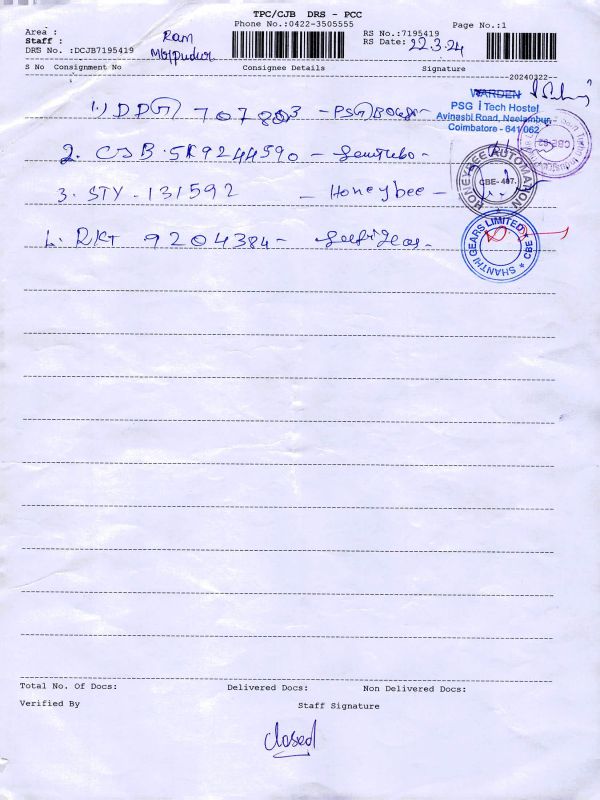 TPC/CJB DRS - PCC
Phone No.:0422-3505555 Page No.:1
Area :
Staff : Ram
RS No.:7195419
DRS No. :DCJB7195419
RS Date: 22.3.24
S No Consignment No Consignee Details Signature
20240322
WARDEN
PSG i Tech Hostel
Avinashi Road, Neelambur,
Coimbatore - 641 062
1.) DDG 707803 - PSG
2. CJB. 5R9244590 -
HONEYBEE AUTOMATION
CBE-407.
3. STY. 131592 - Honeybee -
4. RKT 9204384 -
SHANTHI GEARS LIMITED
CBE
Total No. Of Docs: Delivered Docs: Non Delivered Docs:
Verified By Staff Signature
closed